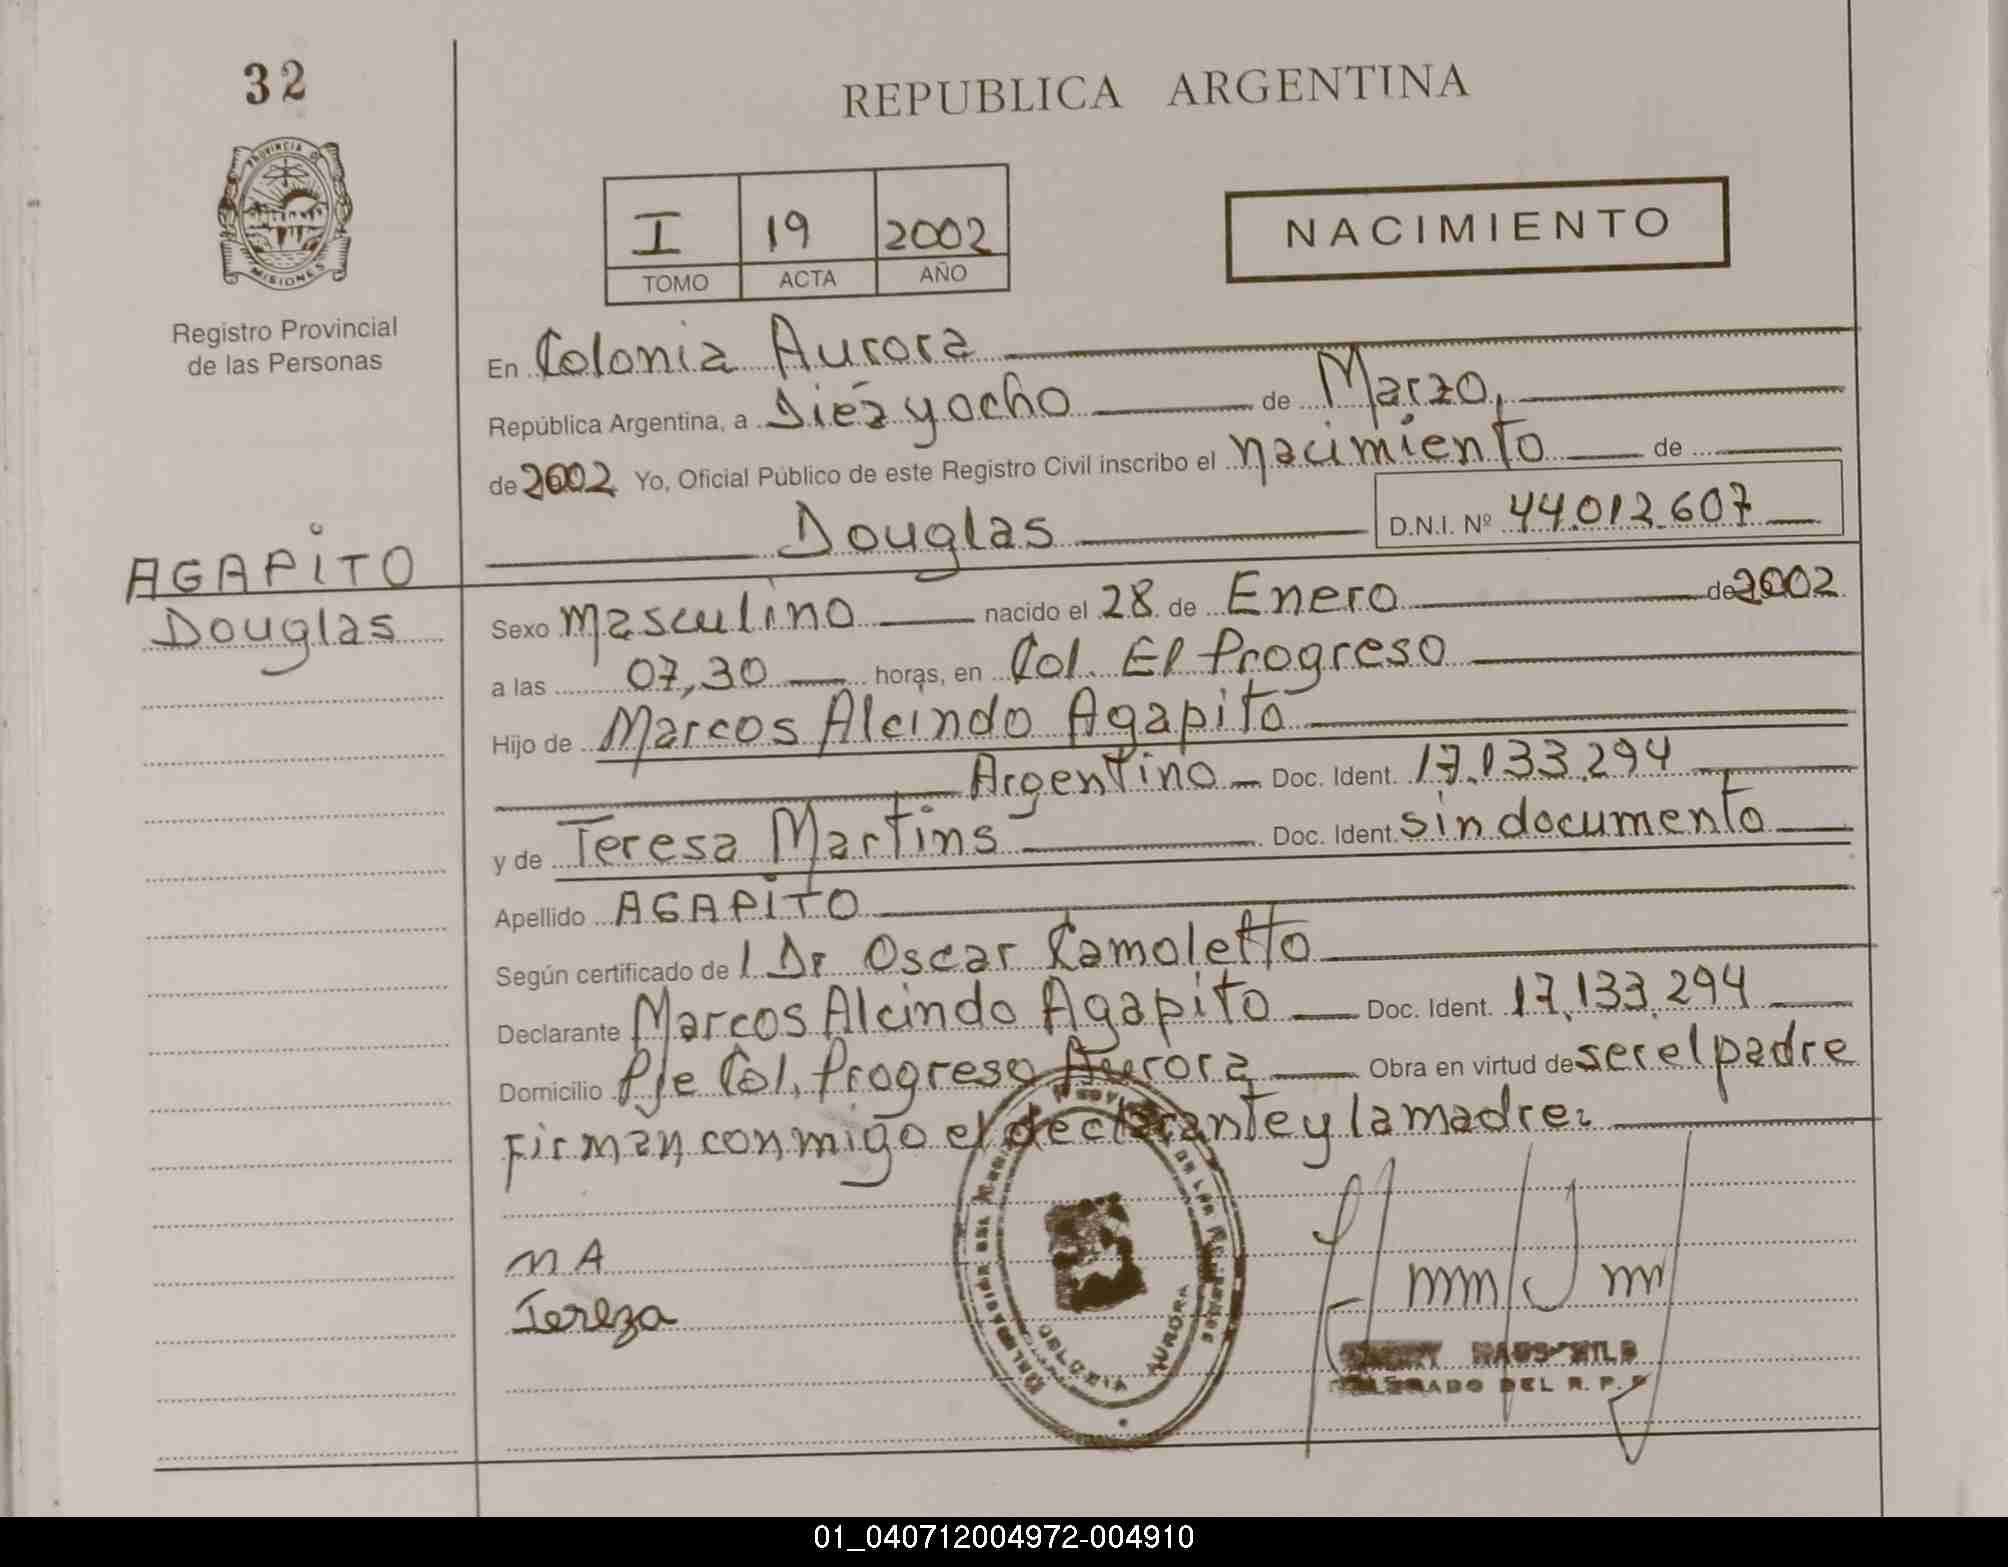 32
REPUBLICA ARGENTINA
PROVINCIA DE
MISIONES
Registro Provincial
de las Personas
I 19 2002
TOMO ACTA AÑO
NACIMIENTO
En Colonia Aurora
República Argentina, a Diez y ocho de Marzo,
de 2002 Yo, Oficial Público de este Registro Civil inscribo el nacimiento de
Douglas D.N.I. Nº 44.012.607
AGAPITO
Douglas
Sexo masculino nacido el 28 de Enero de 2002
a las 07,30 horas, en Col. El Progreso
Hijo de Marcos Alcindo Agapito
Argentino Doc. Ident. 17.133.294
y de Teresa Martins Doc. Ident. sin documento
Apellido AGAPITO
Según certificado de l Dr Oscar Camoletto
Declarante Marcos Alcindo Agapito Doc. Ident. 17.133.294
Domicilio Pje Col. Progreso Aurora Obra en virtud de ser el padre
Firman conmigo el declarante y la madre:
MA
Tereza
AURORA
DEL R. P.
01_040712004972-004910